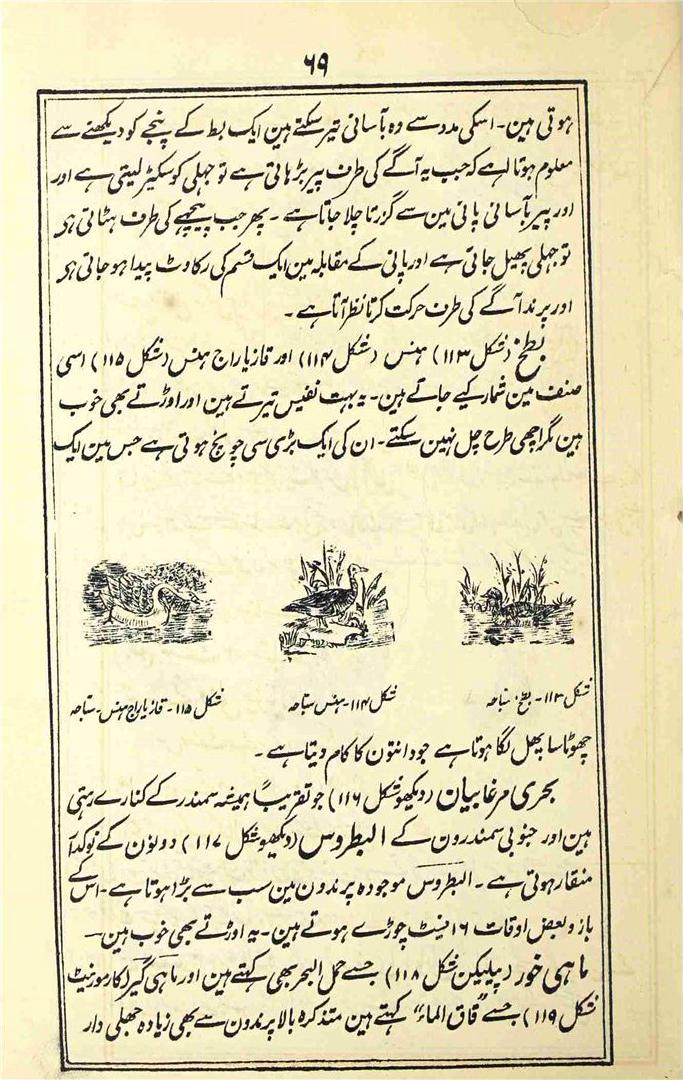 ۶۹
ہوتی ہین۔ اسکی مدد سے وہ بآسانی تیر سکتے ہین ایک بط کے پنجے کو دیکھنے سے
معلوم ہوتا ہے کہ جب یہ آگے کی طرف پیر بڑہاتی ہے تو جہلی کو سکیڑ لیتی ہے اور
اور پیر بآسانی پانی مین سے گزرتا چلا جاتا ہے ۔ پھر جب پیچھے کی طرف ہٹاتی ہی
تو جہلی پھیل جاتی ہے اور پانی کے مقابلہ مین ایک قسم کی رکاوٹ پیدا ہو جاتی ہی
اور پرند آگے کی طرف حرکت کرتا نظر آتا ہے ۔
بطخ (شکل ۱۱۳) ہنس (شکل ۱۱۴) اور قاز یا راج ہنس (شکل ۱۱۵) اسی
صنف مین شمار کیے جاتے ہین۔ یہ بہت نفیس تیرتے ہین اور اوڑتے بھی خوب
ہین مگر اچھی طرح چل نہین سکتے۔ ان کی ایک بڑی سی چونچ ہوتی ہے جس مین ایک
شکل ۱۱۳۔ بطخ۔ سباحہ
شکل ۱۱۴۔ ہنس سباحہ
شکل ۱۱۵۔ قاز یا راج ہنس۔ سباحہ
چھوٹا سا پھل لگا ہوتا ہے جو دانتون کا کام دیتا ہے ۔
بحری مرغابیان (دیکھو شکل ۱۱۶) جو تقریباً ہمیشہ سمندر کے کنارے رہتی
ہین اور جنوبی سمندرون کے البطروس (دیکھو شکل ۱۱۷) دونون کے نوکدار
منقار ہوتی ہے ۔ البطروس موجودہ پرندون مین سب سے بڑا ہوتا ہے۔ اس کے
بازو بعض اوقات ۱۶ فیٹ چوڑے ہوتے ہین۔ یہ اوڑتے بھی خوب ہین۔
ماہی خور (پیلیکن شکل ۱۱۸) جسے حمل البحر بھی کہتے ہین اور ماہی گیر (کارمورنیٹ
شکل ۱۱۹) جسے "قاق الماء" کہتے ہین متذکرہ بالا پرندون سے بھی زیادہ جھلی دار